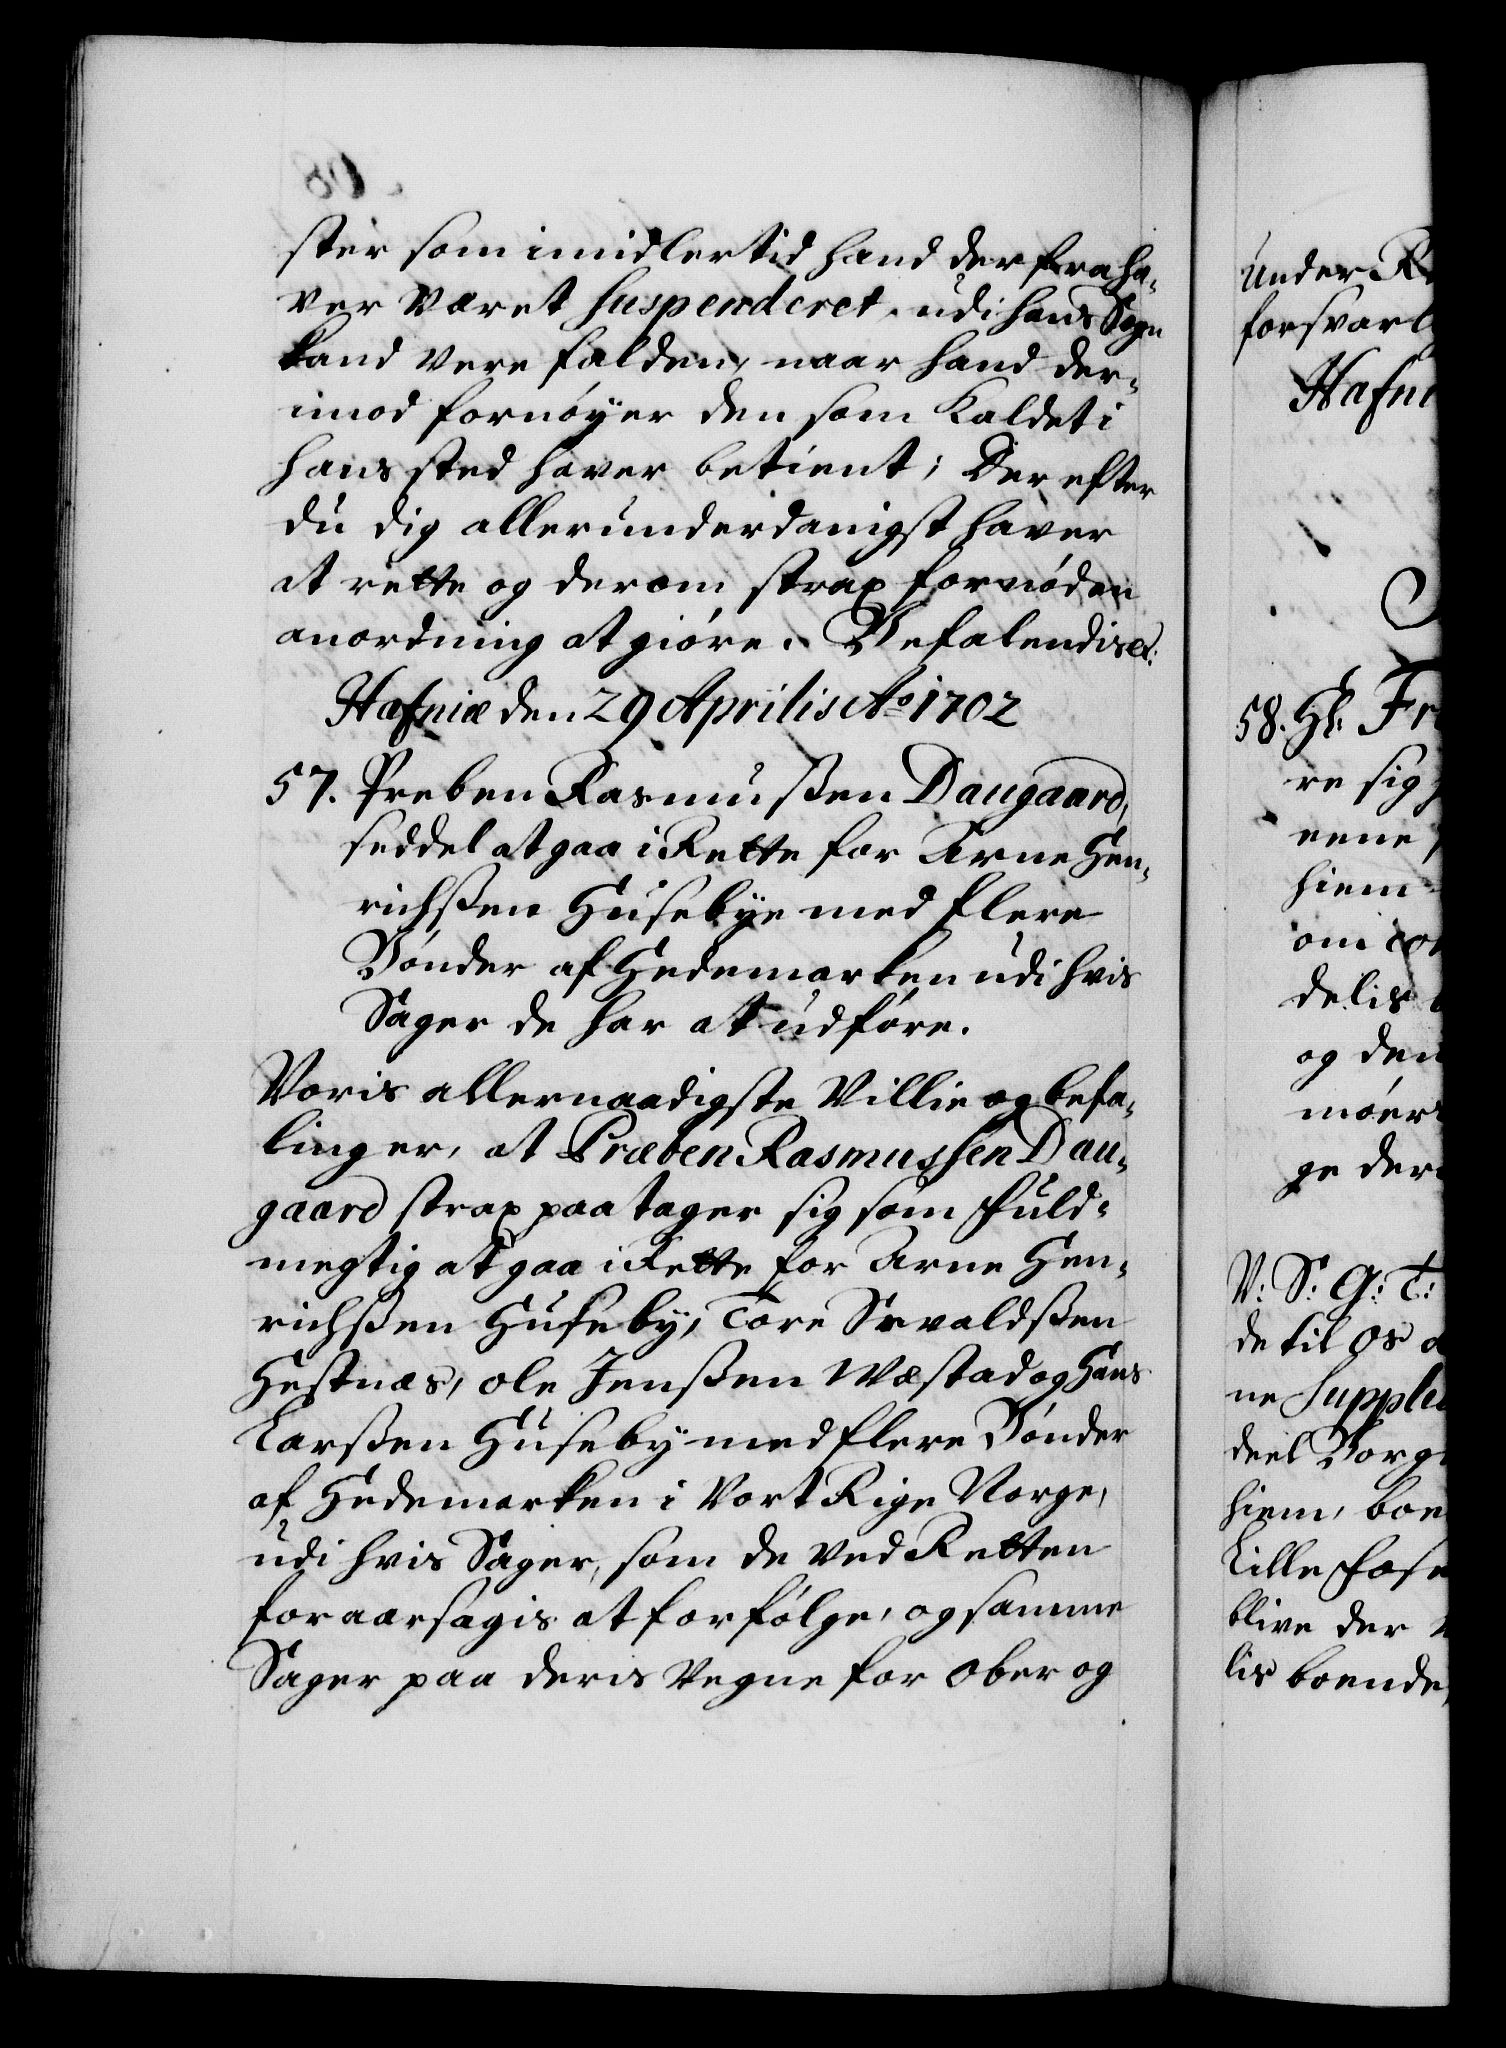 ster som imidlertid hand der fra ha-
ver været suspenderet, udi hans Sogn
kand vere falden, naar hand der-
imod fornøyer den som Kaldet i
hans sted haver betient; Der efter
du dig allerunderdanigst haver
at rette og derom strax fornøden
anordning at giøre. Befalendis etc:
Hafniæ den 29 Aprilis Ao 1702
57. Preben Rasmussen Daugaard,
seddel at gaa i Rette for Arne Hen-
richssen Husebye med flere
Bønder af Hedemarken udi hvis
Sager de har at udføre.
Voris allernaadigste Villie og befa-
linger, at Præben Rasmussen Dau-
gaard strax paa tager sig som fuld-
megtig at gaa i Rette for Arne Hen-
richssen Huseby, Tore Sevaldssen
Hestnæs, ole Jenssen Wæstad og Hans
Larssen Huseby med flere Bønder
af Hedemarken i Vort Rige Norge,
udi hvis Sager, som de ved Retten
foraarsagis at forfølge, og samme
Sager paa deris Vegne for Ober og
under
forsvarl
Hafni
58. Hr. Fr
re sig
eene
hiem
om
delis
og den
ge der
V: S: G: T:
de til os
ne Supplic
deel Borg
hiem, boe
Lille Fose
blive der
lis boende,